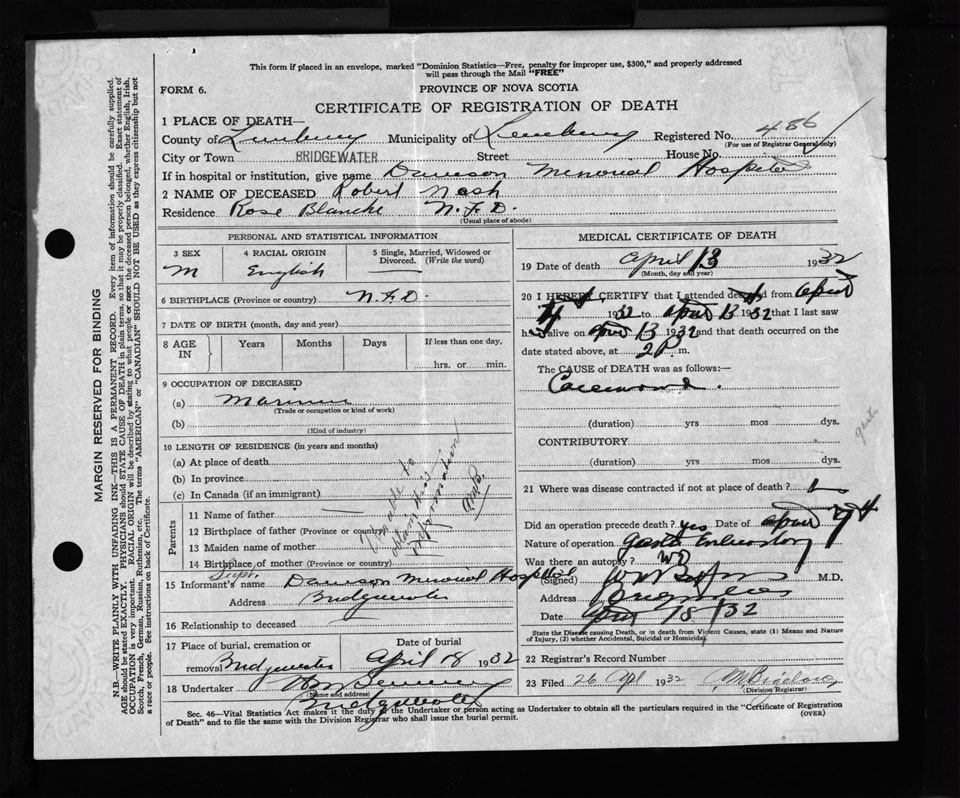 This form if placed in an envelope, marked "Dominion Statistics—Free, penalty for improper use, $300," and properly addressed
will pass through the Mail "FREE"
FORM 6.
PROVINCE OF NOVA SCOTIA
CERTIFICATE OF REGISTRATION OF DEATH
1 PLACE OF DEATH—
County of Lunenburg Municipality of Lunenburg Registered No. 486
(For use of Registrar General only)
City or Town BRIDGEWATER Street House No.
If in hospital or institution, give name Dawson Memorial Hospital
2 NAME OF DECEASED Robert Nash
Residence Rose Blanche N.F.D.
(Usual place of abode)
PERSONAL AND STATISTICAL INFORMATION
3 SEX 4 RACIAL ORIGIN 5 Single, Married, Widowed or
Divorced. (Write the word)
M English
6 BIRTHPLACE (Province or country) N.F.D.
7 DATE OF BIRTH (month, day and year)
8 AGE IN Years Months Days If less than one day,
hrs. or min.
9 OCCUPATION OF DECEASED
(a) Mariner
(Trade or occupation or kind of work)
(b)
(Kind of industry)
10 LENGTH OF RESIDENCE (in years and months)
(a) At place of death
(b) In province
(c) In Canada (if an immigrant)
Parents
11 Name of father
12 Birthplace of father (Province or country)
13 Maiden name of mother
14 Birthplace of mother
Unable to
obtain this
information
15 Informant's name Supt. Dawson Memorial Hospital
Address Bridgewater
16 Relationship to deceased
17 Place of burial, cremation or Date of burial
removal Bridgewater April 18 1932
18 Undertaker
(Name and address)
Bridgewater
MEDICAL CERTIFICATE OF DEATH
19 Date of death April 13 1932
(Month, day and year)
20 I HEREBY CERTIFY that I attended deceased from April
4 1932 to April 13 1932 that I last saw
h alive on April 13 1932 and that death occurred on the
date stated above, at 2 P. m.
The CAUSE of DEATH was as follows:
Carcinoma
(duration) yrs mos dys.
CONTRIBUTORY
(duration) yrs mos dys.
21 Where was disease contracted if not at place of death?
Did an operation precede death? yes Date of April
Nature of operation gastro Enterostomy
Was there an autopsy? no
(Signed) M.D.
Address Bridgewater
Date April 18/32
State the Disease causing Death, or in death from Violent Causes, state (1) Means and Nature
of Injury, (2) whether Accidental, Suicidal or Homicidal.
22 Registrar's Record Number
23 Filed 26 Apl 1932
(Division Registrar)
Sec. 46—Vital Statistics Act makes it the duty of the Undertaker or person acting as Undertaker to obtain all the particulars required in the "Certificate of Registration
of Death" and to file the same with the Division Registrar who shall issue the burial permit.
(OVER)
MARGIN RESERVED FOR BINDING
N.B.—WRITE PLAINLY WITH UNFADING INK—THIS IS A PERMANENT RECORD. Every item of information should be carefully supplied.
AGE should be stated EXACTLY. PHYSICIANS should STATE CAUSE OF DEATH in plain terms, so that it may be properly classified. Exact statement of
OCCUPATION is very important. RACIAL ORIGIN will be described by stating to what people or race the deceased person belonged, whether English, Irish,
Scotch, French, German, Russian, Ruthenian, etc. The terms "AMERICAN" or "CANADIAN" SHOULD NOT BE USED as they express citizenship but not
a race or people. See instructions on back of Certificate.